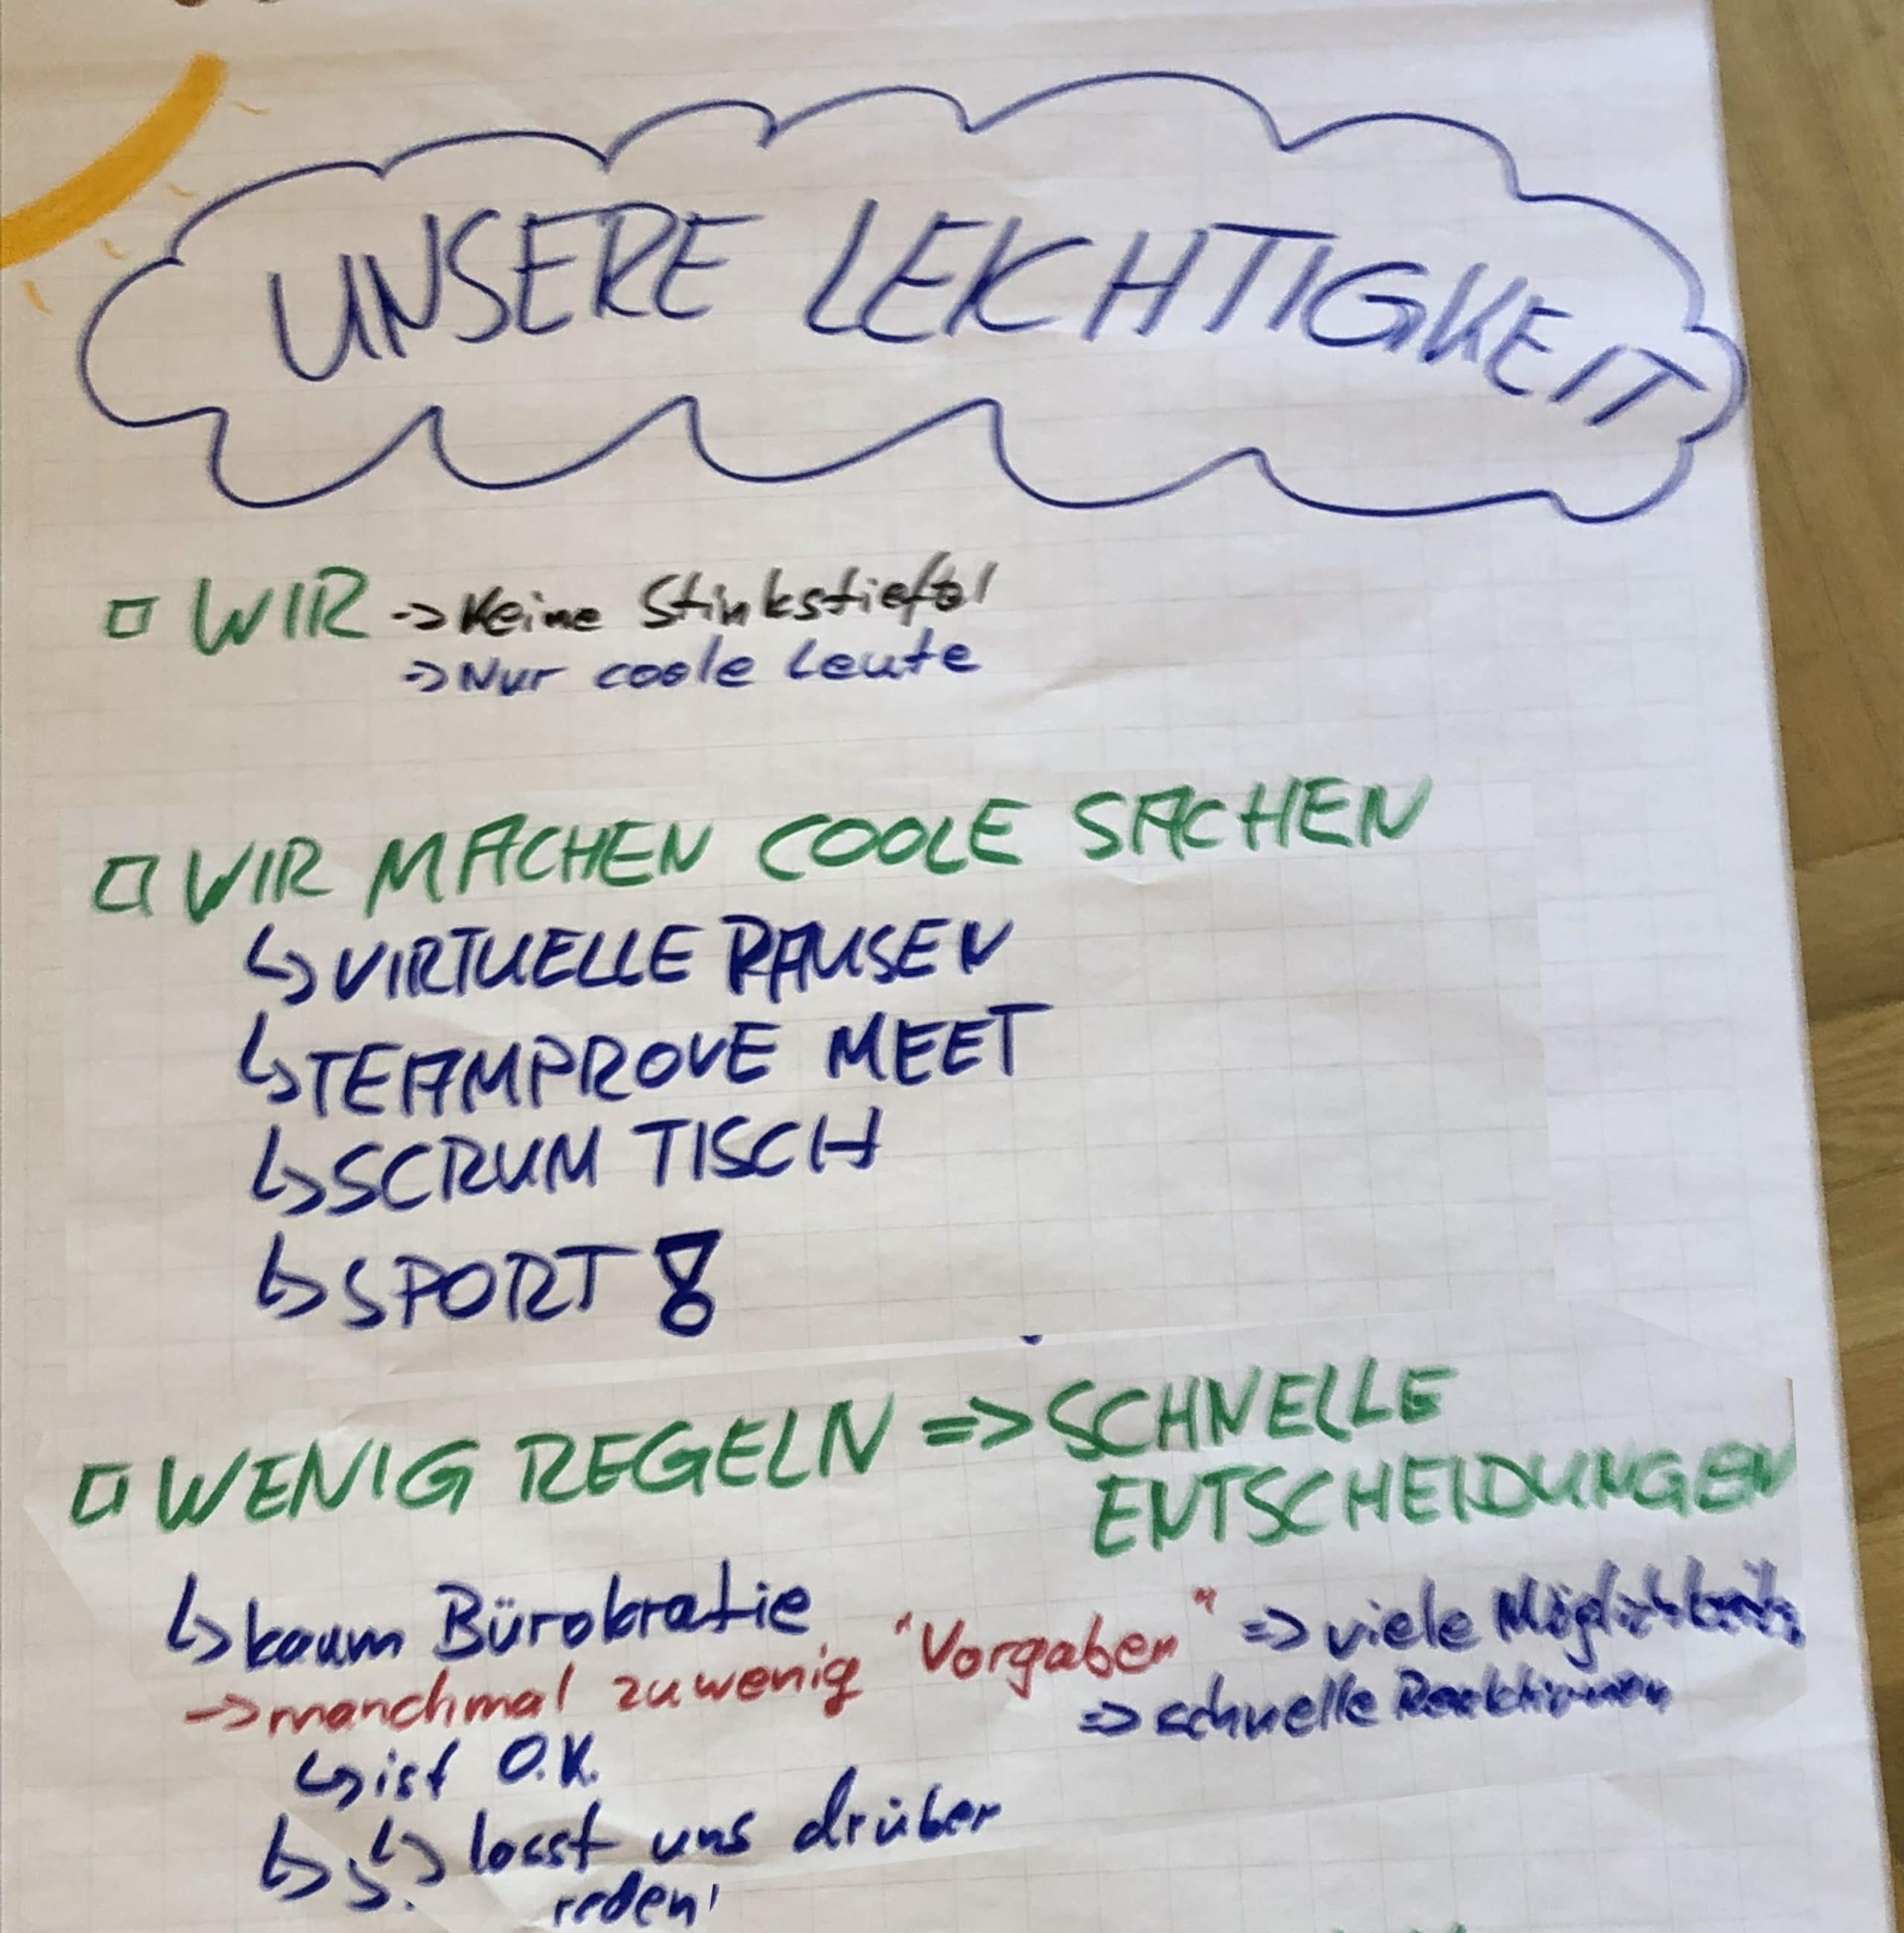 UNSERE LEICHTIGKEIT
□ WIR -> Keine Stinkstiefel
=> Nur coole Leute
□ WIR MACHEN COOLE SACHEN
↳ VIRTUELLE PAUSEN
↳ TEAMPROVE MEET
↳ SCRUM TISCH
↳ SPORT!
□ WENIG REGELN => SCHNELLE
ENTSCHEIDUNGEN
↳ kaum Bürokratie
=> viele
-> manchmal zuwenig "Vorgaben"
=> schnelle Reaktionen
↳ ist O.K.
↳ ↳ lasst uns drüber
reden!